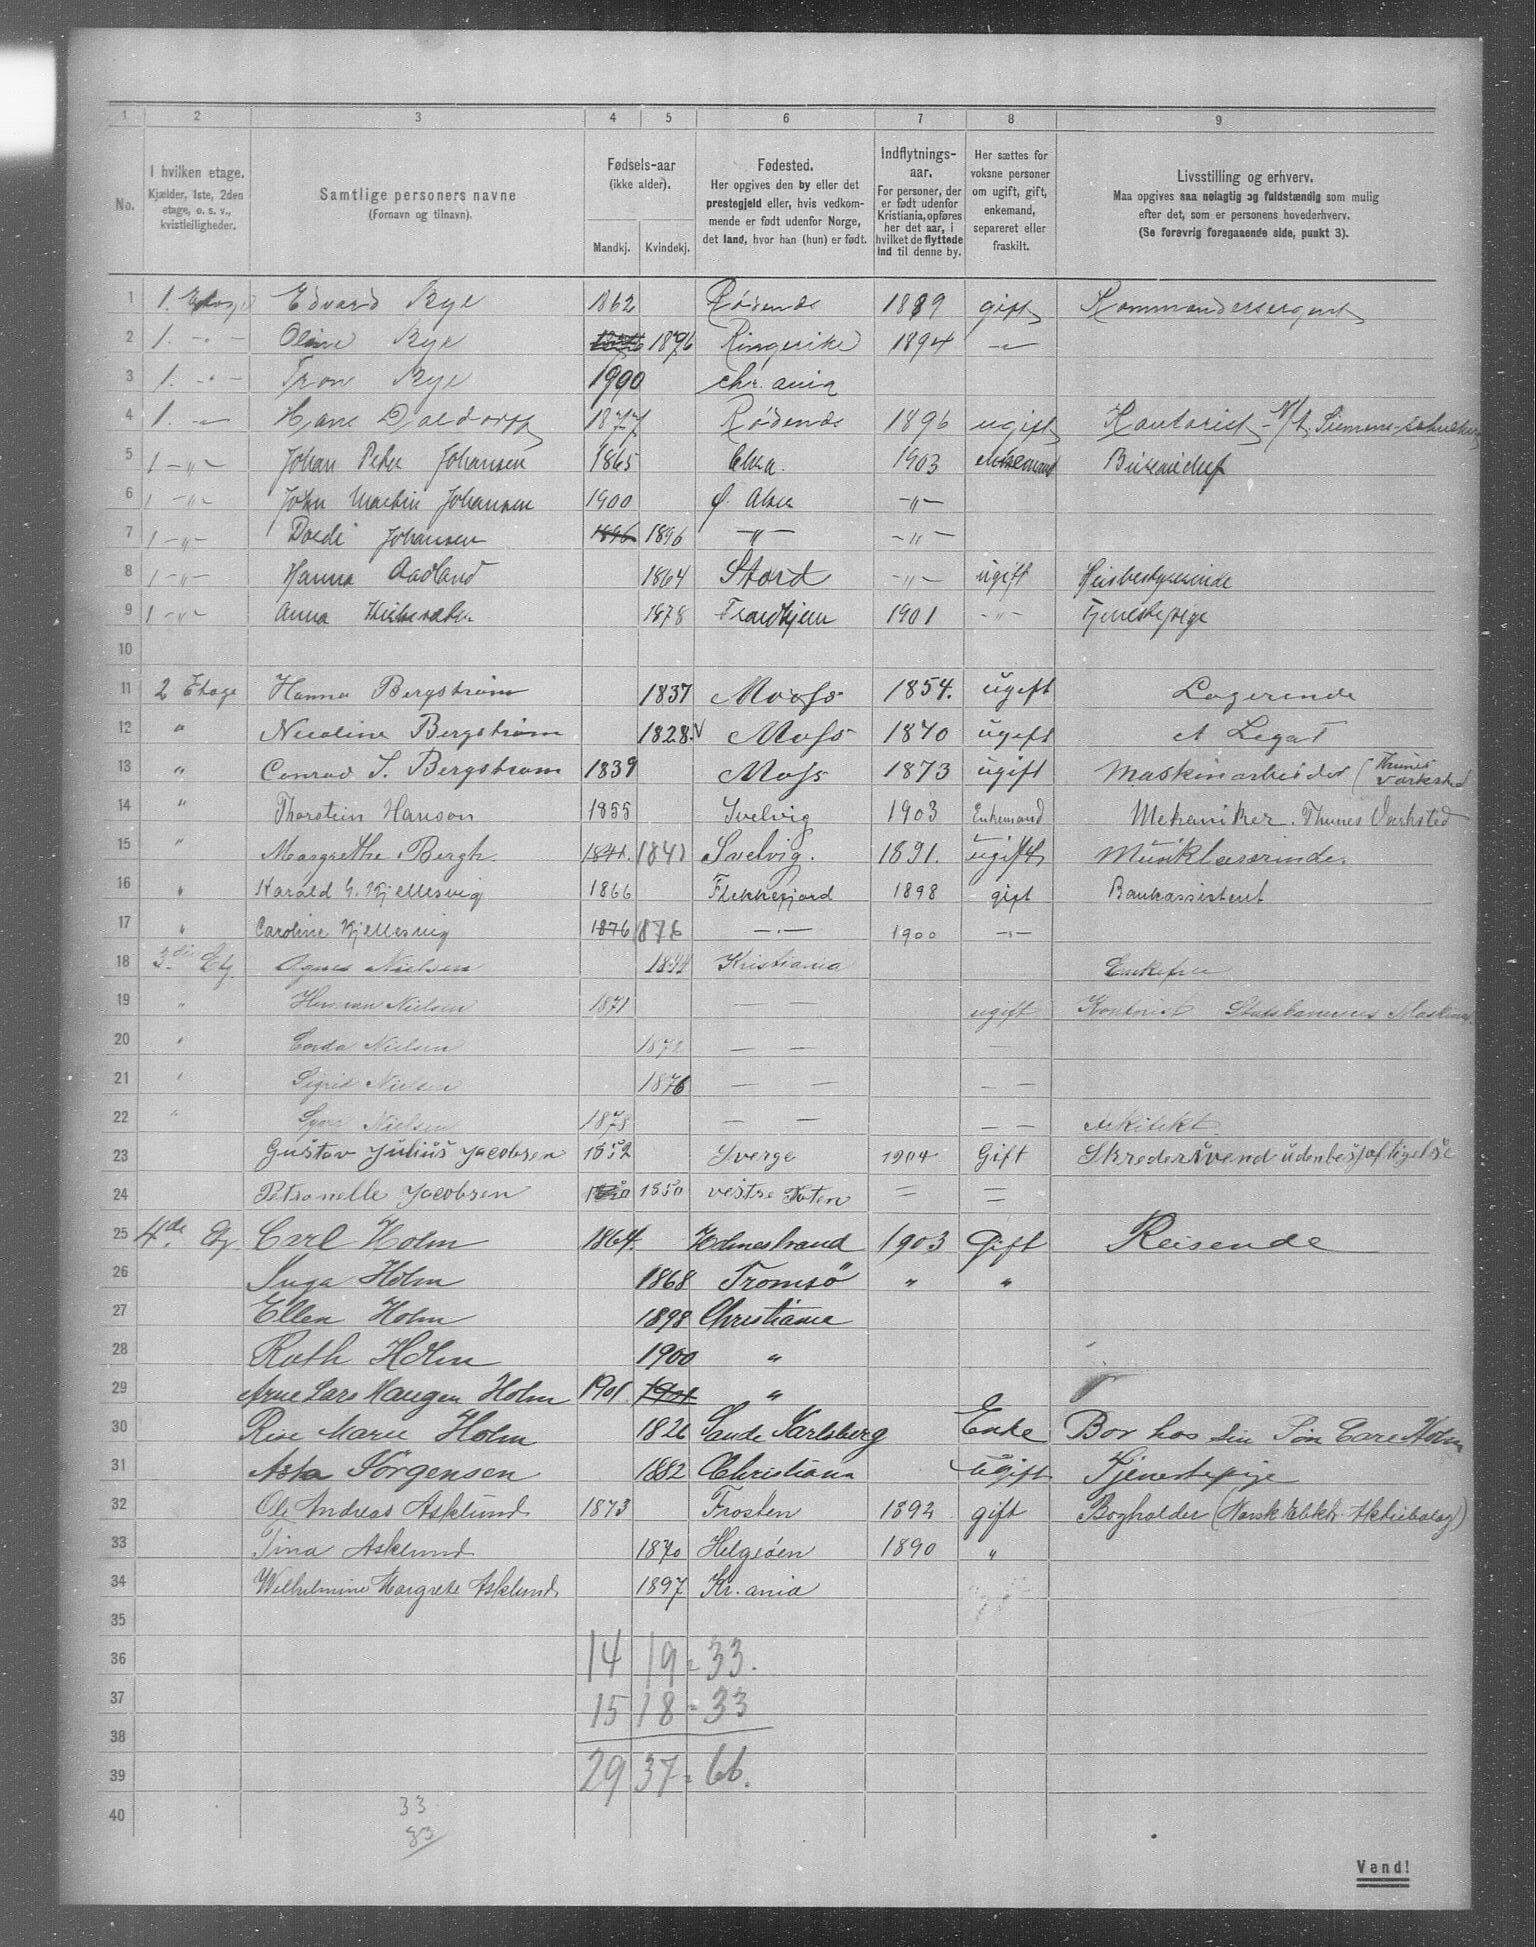 1 2 3 4 5 6 7 8 9
No.
I hvilken etage.
Kjælder, 1ste, 2den
etage, o. s. v.,
kvistleiligheder.
Samtlige personers navne
(Fornavn og tilnavn).
Fødsels-aar
(ikke alder).
Mandkj. Kvindekj.
Fødested.
Her opgives den by eller det
prestegjeld eller, hvis vedkom-
mende er født udenfor Norge,
det land, hvor han (hun) er født.
Indflytnings-
aar.
For personer, der
er født udenfor
Kristiania, opføres
her det aar, i
hvilket de flyttede
ind til denne by.
Her sættes for
voksne personer
om ugift, gift,
enkemand,
separeret eller
fraskilt.
Livsstilling og erhverv.
Maa opgives saa nøiagtig og fuldstændig som mulig
efter det, som er personens hovederhverv.
(Se forøvrig foregaaende side, punkt 3).
1 1. Etage Edvard Rye 1862 Rødenæs 1889 gift Kommandersergent
2 1. -"- Oline Rye 1876 Ringerike 1894 -"-
3 1. -"- Tron Rye 1900 Chr.ania
4 1. -"- Hans 1877 Rødenæs 1896 ugift Kontorist - A/S Siemens-Schuckert
5 1 -"- Johan Peter Johansen 1865 1903 enkemand
6 1 -"- John Martin Johansen 1900 -"-
7 1 -"- Johansen 1896 1896 -"- -"-
8 1 -"- Hanna Aadland 1864 Stord -"- ugift Husbestyrerinde
9 1 -"- Anna 1878 Trondhjem 1901 -"- Tjenestepige
10
11 2 Etage Hanna Bergstrøm 1837 Moss 1854. ugift Logerende
12 " Nicoline Bergstrøm 1828. Moss 1870 ugift Legat
13 " Conrad S. Bergstrøm 1839 Moss 1873 ugift Maskinarbeider (Thunes Værksted
14 " Thorstein Hanson 1855 Svelvig 1903 Enkemand Mekaniker. Thunes Værksted
15 " Margrethe Bergh. 1841. 1841 Svelvig. 1891. ugift Musiklærerinde.
16 " Harald G. Kjellesvig 1866 Flekkefjord 1898 gift Bankassistent
17 " Caroline Kjellesvig 1876 1876 -"- 1900 -"-
18 3die Etg Agnes Nielsen Kristiania Enkefru
19 " Herman Nielsen 1871 — — ugift Kontorist Statsbanernes Maskinaf
20 " Nielsen 1872 — — —
21 " Sigrid Nielsen 1876 — — — —
22 " Nielsen 1878 — — — — Arkitekt
23 Gustav Julius Jacobsen 1852 Sverge 1904 Gift Skredersvend udenbesjæftigelse
24 Petronelle Jacobsen 1850 1850 vestre Toten = =
25 4de Etg Carl Holm 1864. Holmestrand 1903 Gift Reisende
26 Inga Holm 1868 Tromsö " "
27 Ellen Holm 1898 Christiania
28 Ruth Holm 1900 "
29 Arne Lars Haugen Holm 1901. 1901 "
30 Marie Holm 1826 Sande Jarlsberg Enke Bor hos sin Søn Carl Holm
31 Asta Jörgensen 1882 Christiana ugift Tjenestepige
32 Ole Andreas Asklund 1873 Frosten 1892 gift Bogholder (Norsk Elektr. Aktiebolag)
33 Tina Asklund 1870 Helgeöen 1890 "
34 Wilhelmine Margrete Asklund 1897 Kr.ania
35
36 14 19 = 33.
37 15 18 = 33
38
39 29 37 = 66.
40 33
83
Vend!